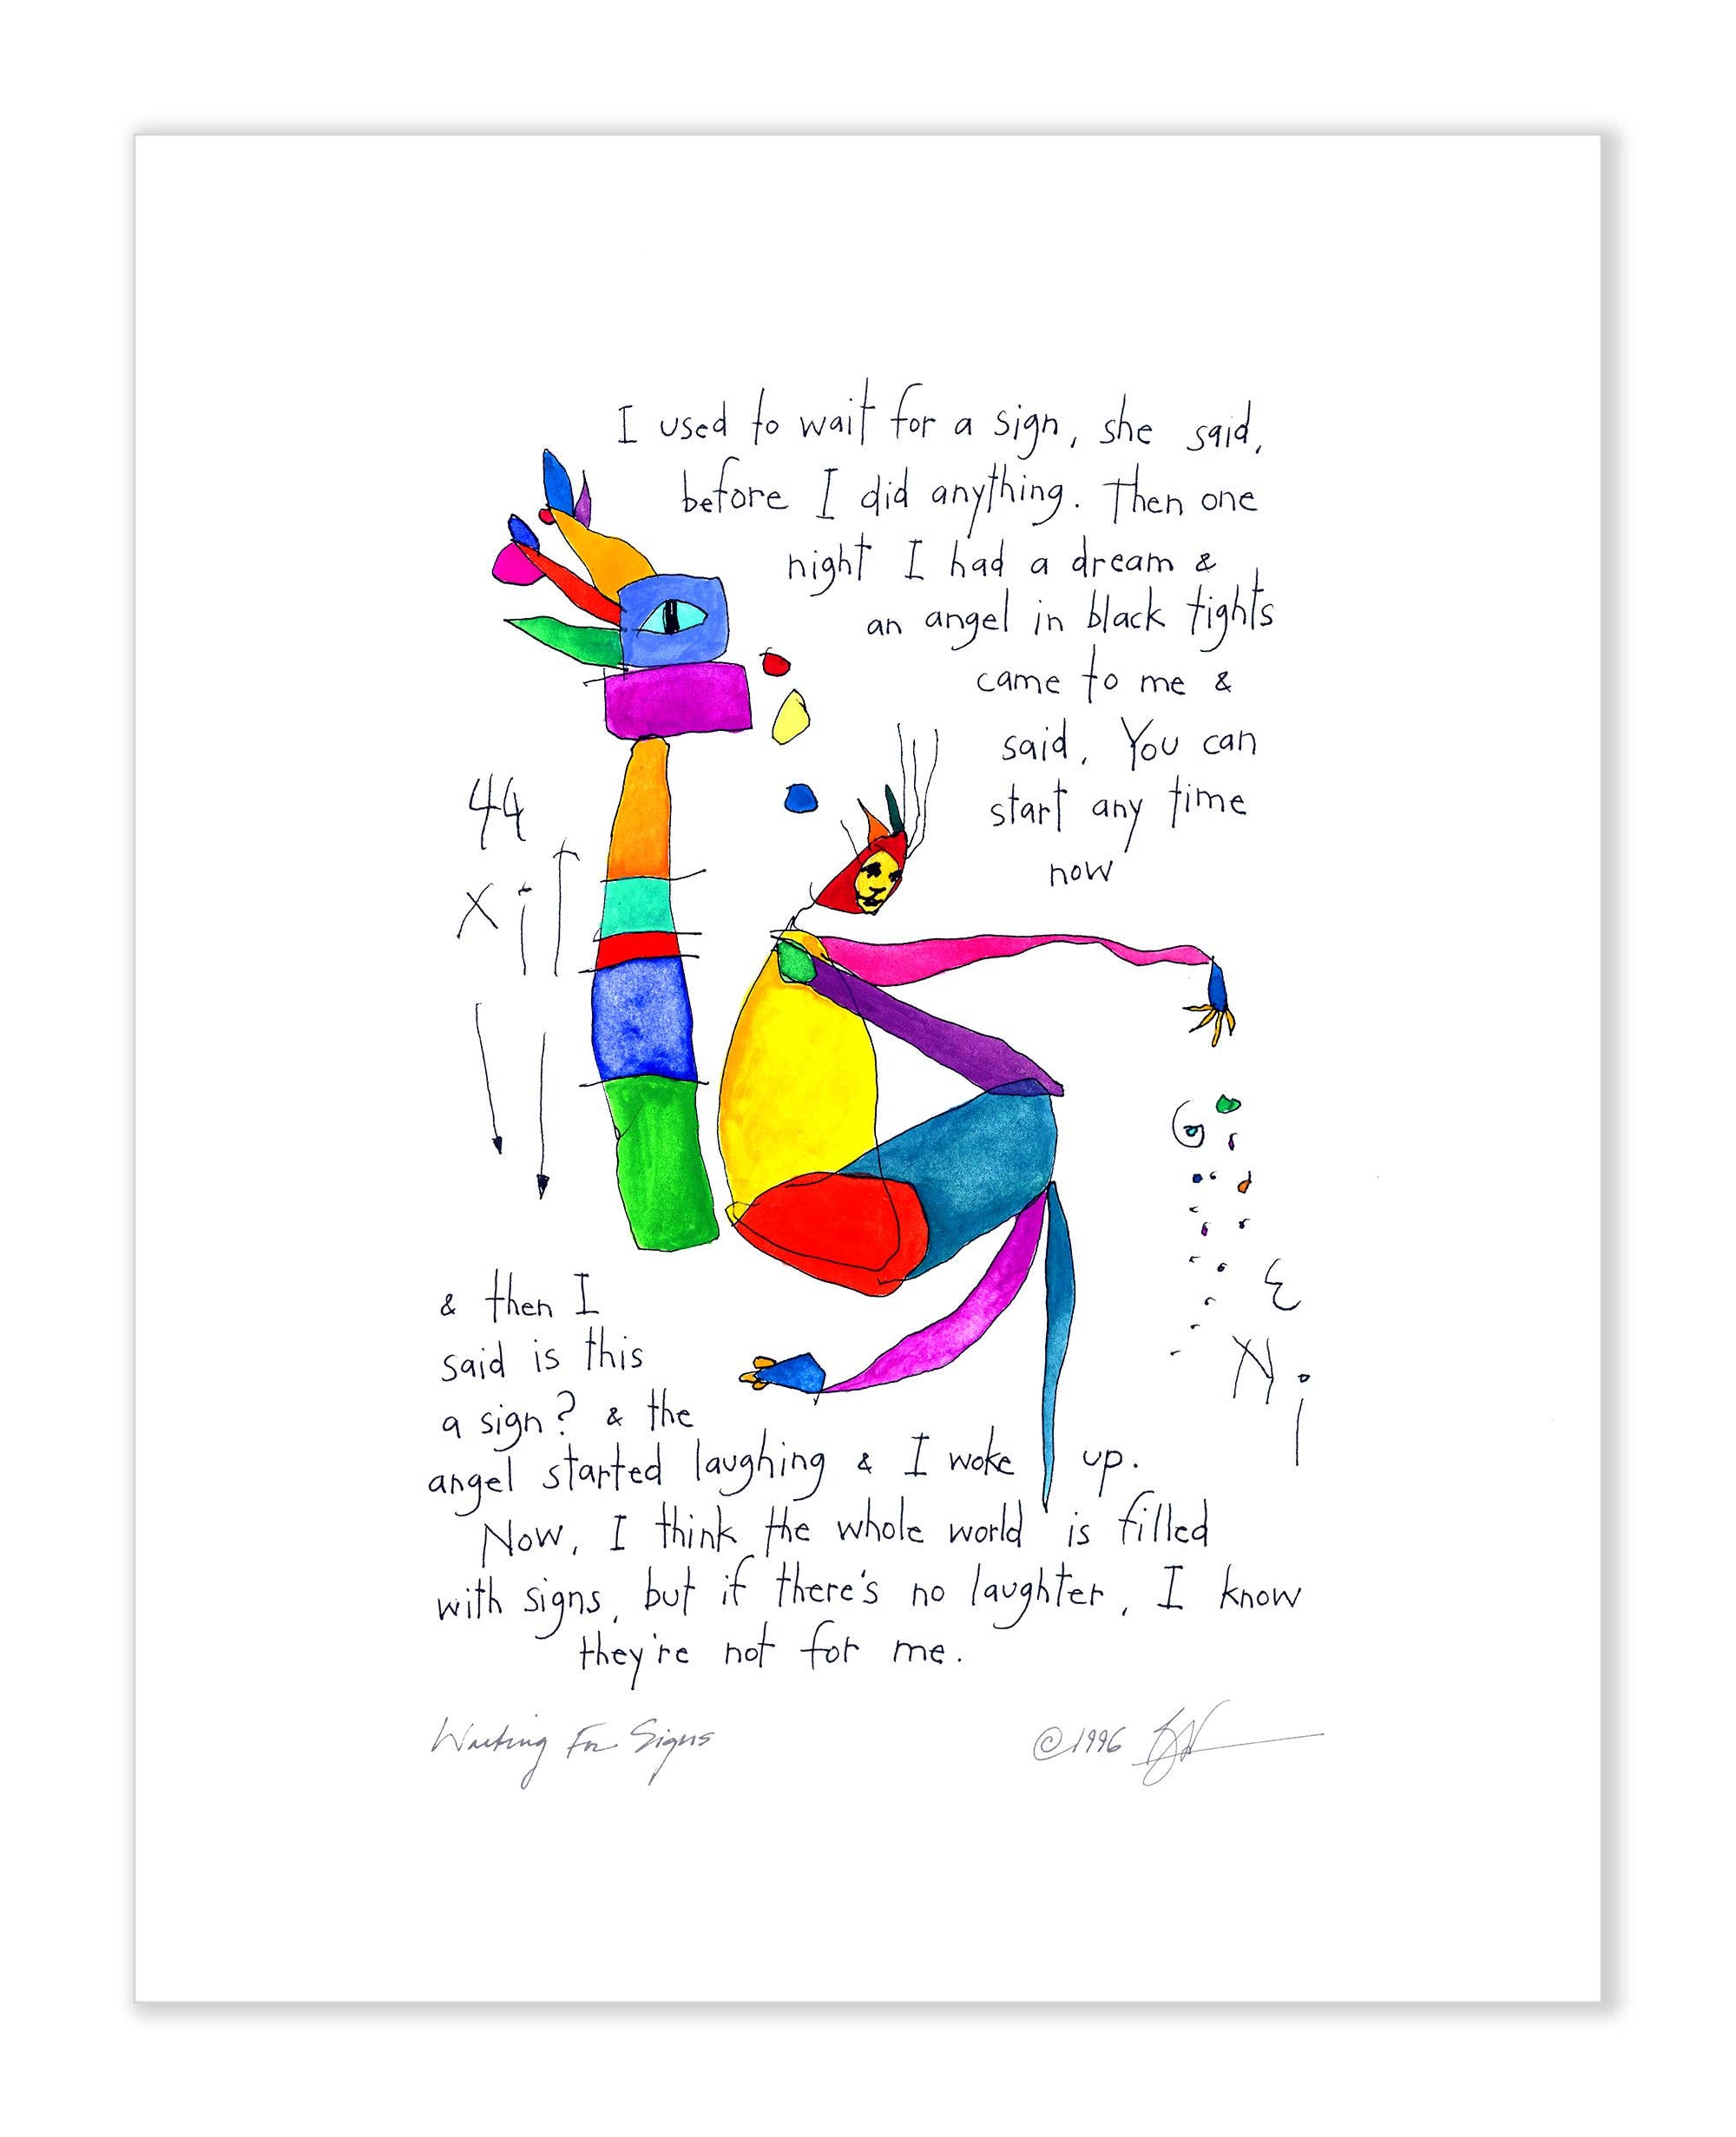 I used to wait for a sign, she said,
before I did anything. Then one
night I had a dream &
an angel in black tights
came to me &
said, You can
start any time
now
44
& then I
said is this
a sign? & the
angel started laughing & I woke up.
Now, I think the whole world is filled
with signs, but if there's no laughter, I know
they're not for me.
Waiting For Signs
©1996